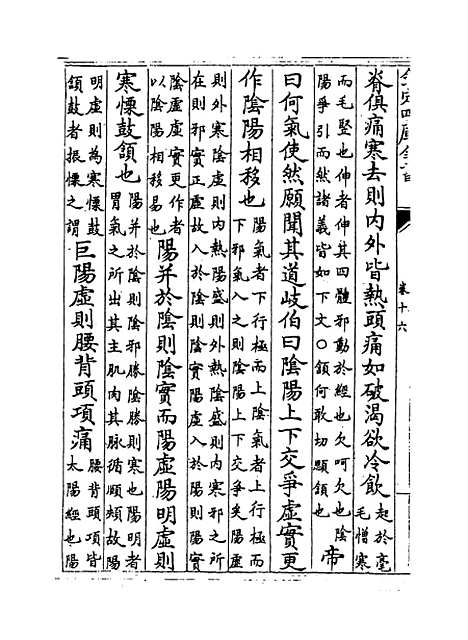 欽定四庫全書
卷十六
脊俱痛寒去則内外皆熱頭痛如破渴欲冷飲起於毫
毛憎寒
而毛竪也伸者伸其四體邪動於經也欠呵欠也陰
陽爭引而然諸義皆如下文○頷何敢切顋頷也帝
曰何氣使然願聞其道岐伯曰陰陽上下交爭虚實更
作陰陽相移也陽氣者下行極而上陰氣者上行極而
下邪氣入之則陰陽上下交爭矣陽虚
則外寒陰虚則内熱陽盛則外熱陰盛則内寒邪之所
在則邪實正虚故入於陰則陰實陽虚入於陽則陽實
陰虚虚實更作者
以陰陽相移易也陽并於陰則陰實而陽虚陽明虚則
寒慄鼓頷也陽并於陰則陰邪勝陰勝則寒也陽明者
胃氣之所出其主肌肉其脉循頤頰故陽
明虚則為寒慄鼓
頷鼓者振慄之謂巨陽虚則腰背頭項痛腰背頭項皆
太陽經也陽